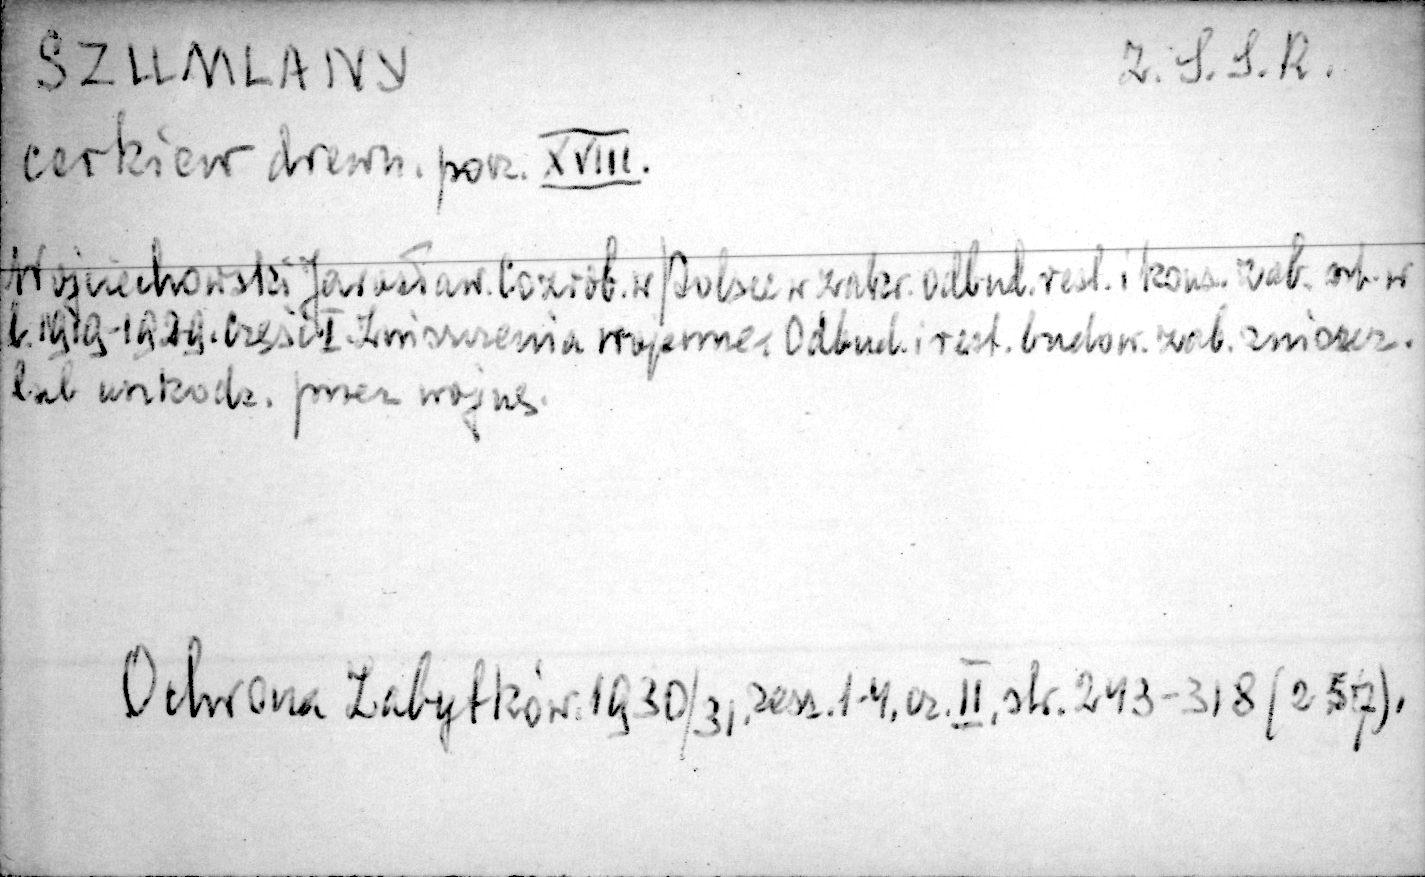 SZUMLANY
Z.S.S.R.
cerkiew drewn. pocz. XVIII.
Wojciechowski Jarosław. Co zrob. w Polsce w zakr. odbud. rest. i kons. zab. szt. w
l. 1919-1929. Część I. Zniszczenia wojenne. Odbud. i rest. budow. zab. zniszcz.
lub uszkodz. przez wojnę.
Ochrona Zabytków. 1930/31, zesz. 1-4, cz. II, str. 243-318 (257).